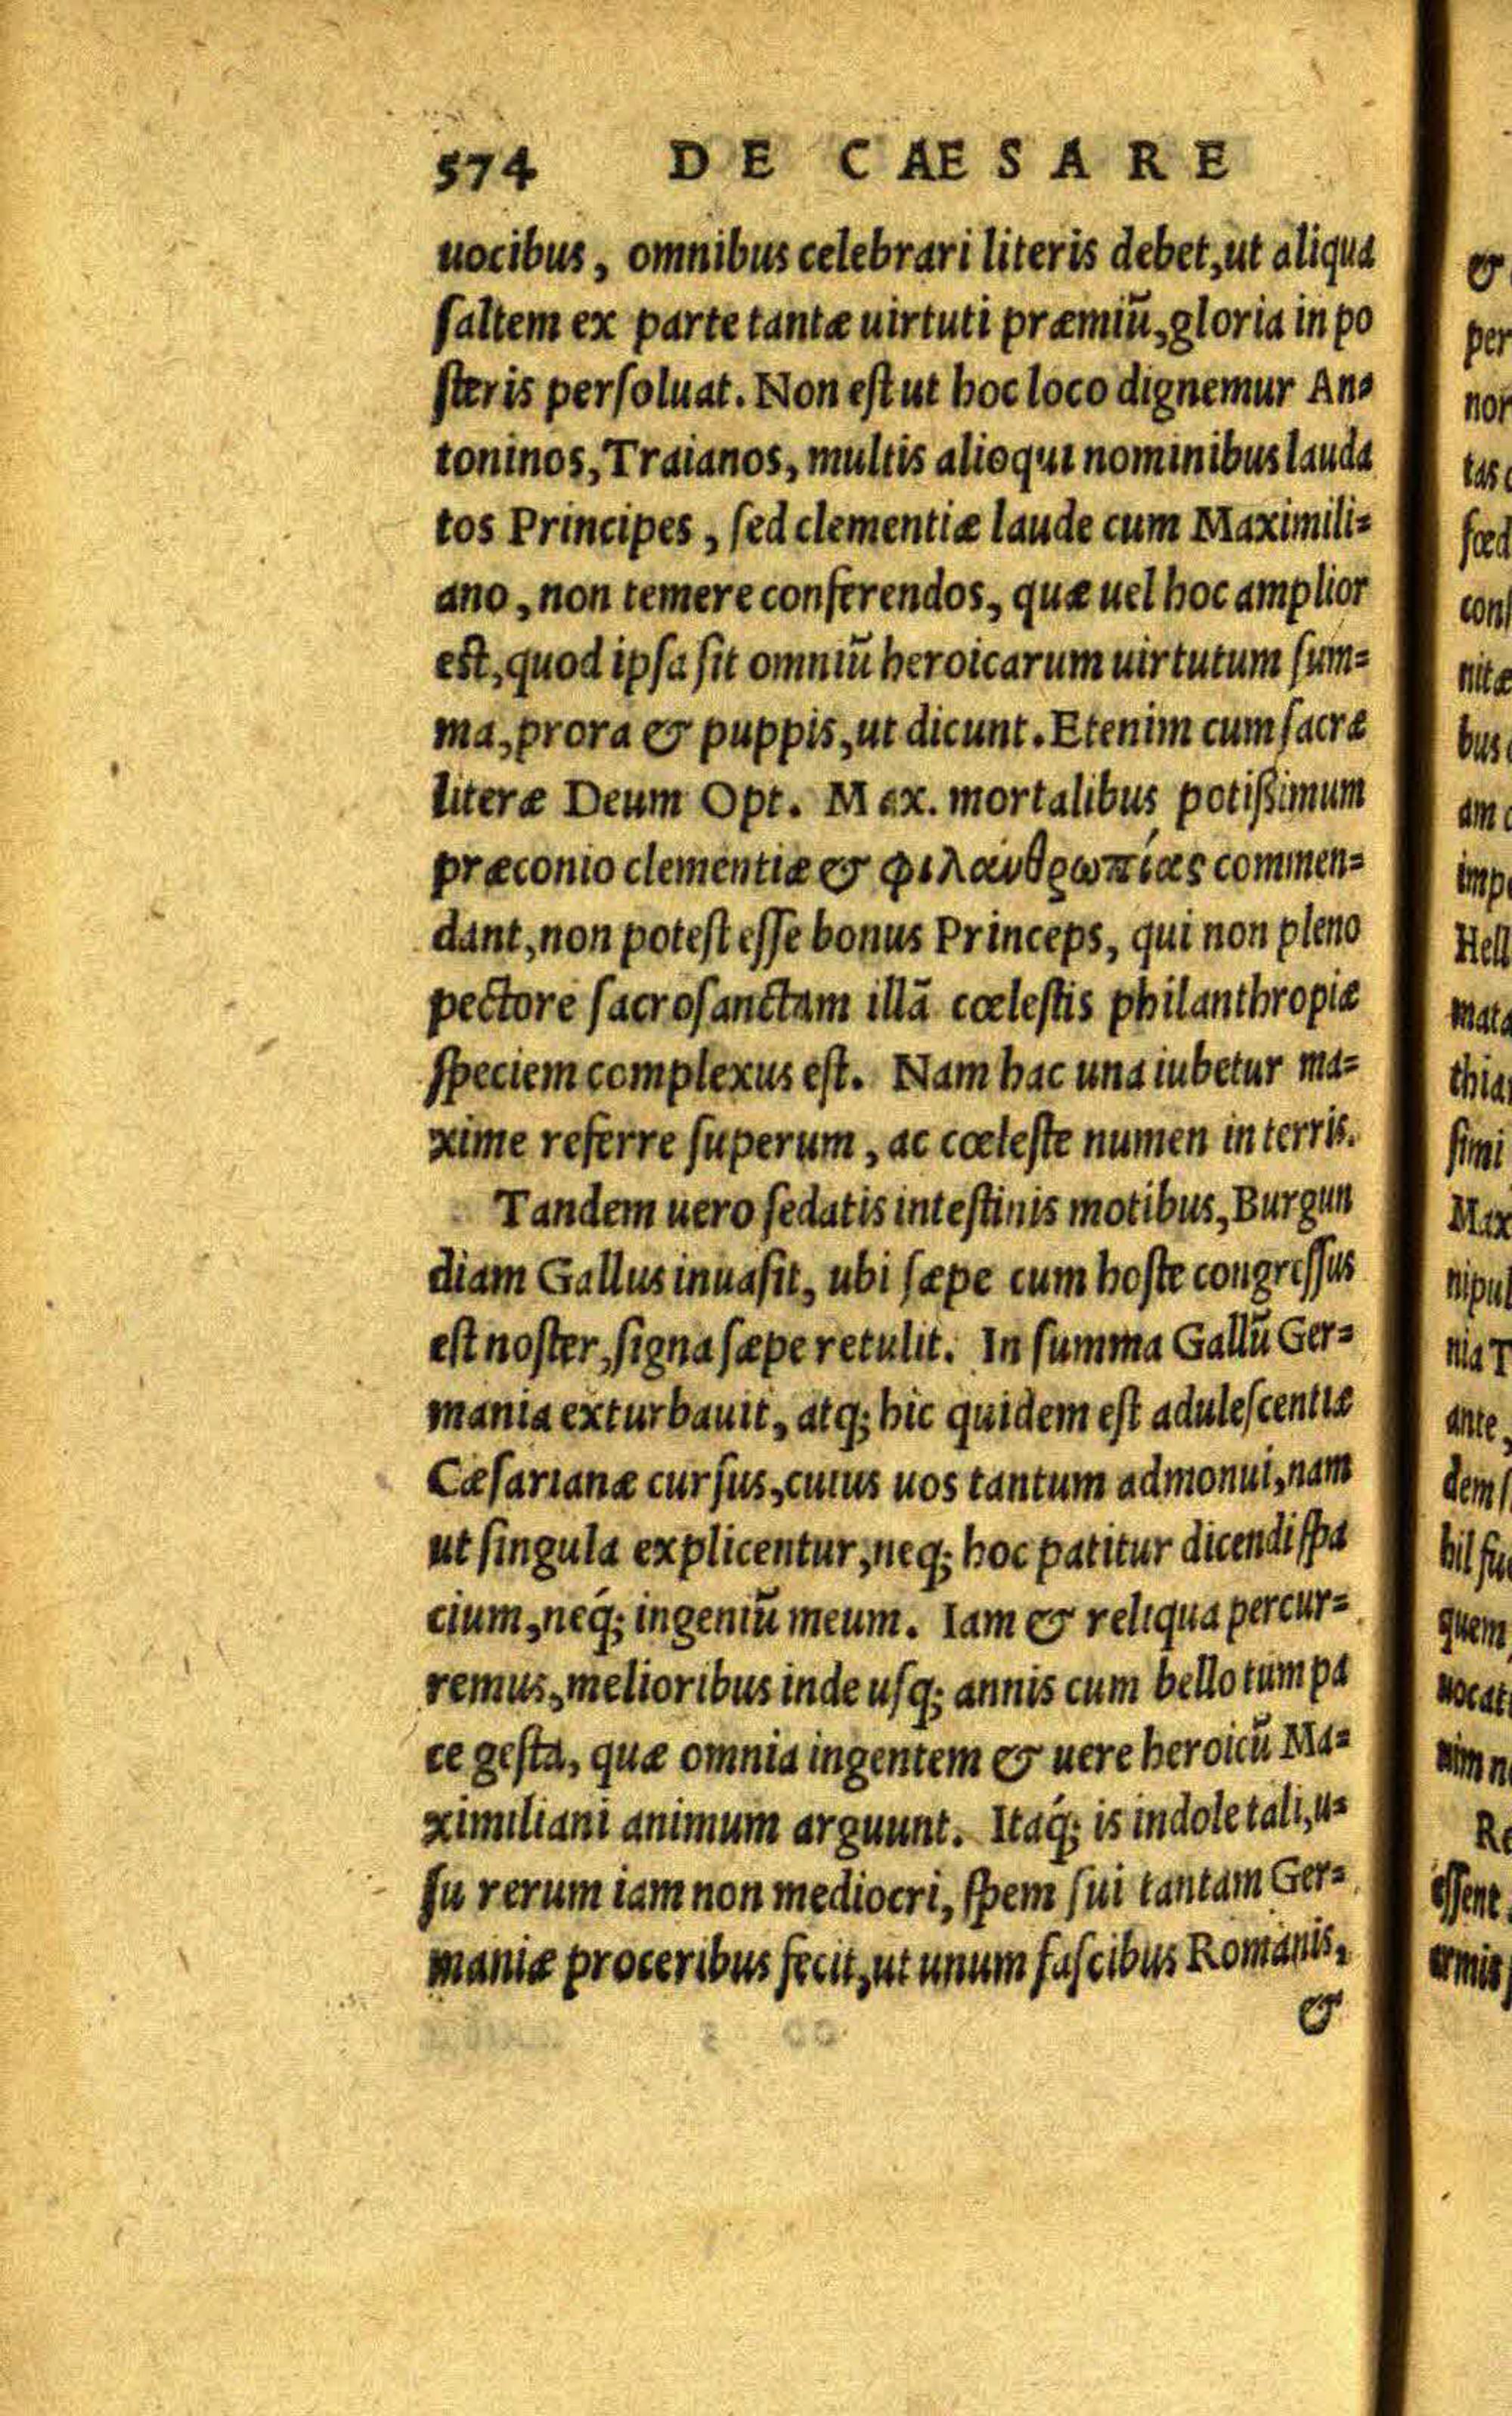 574 DE CAESARE
uocibus, omnibus celebrari literis debet, ut aliqua
saltem ex parte tantæ uirtuti præmiũ, gloria in po
steris persoluat. Non est ut hoc loco dignemur An=
toninos, Traianos, multis alioqui nominibus lauda
tos Principes, sed clementiæ laude cum Maximili=
ano, non temere conferendos, quæ uel hoc amplior
est, quod ipsa sit omniũ heroicarum uirtutum sum=
ma, prora & puppis, ut dicunt. Etenim cum sacræ
literæ Deum Opt. Max. mortalibus potißimum
præconio clementiæ & φιλανθρωπίας commen=
dant, non potest esse bonus Princeps, qui non pleno
pectore sacrosanctam illã cœlestis philanthropiæ
speciem complexus est. Nam hac una iubetur ma=
xime referre superum, ac cœleste numen in terris.
Tandem uero sedatis intestinis motibus, Burgun
diam Gallus inuasit, ubi sæpe cum hoste congressus
est noster, signa sæpe retulit. In summa Gallũ Ger=
mania exturbauit, atq; hic quidem est adulescentiæ
Cæsarianæ cursus, cuius uos tantum admonui, nam
ut singula explicentur, neq; hoc patitur dicendi spa
cium, neq́; ingeniũ meum. Iam & reliqua percur=
remus, melioribus inde usq; annis cum bello tum pa
ce gesta, quæ omnia ingentem & uere heroicũ Ma=
ximiliani animum arguunt. Itaq́; is indole tali, u=
su rerum iam non mediocri, spem sui tantam Ger=
maniæ proceribus fecit, ut unum fascibus Romanis,
&